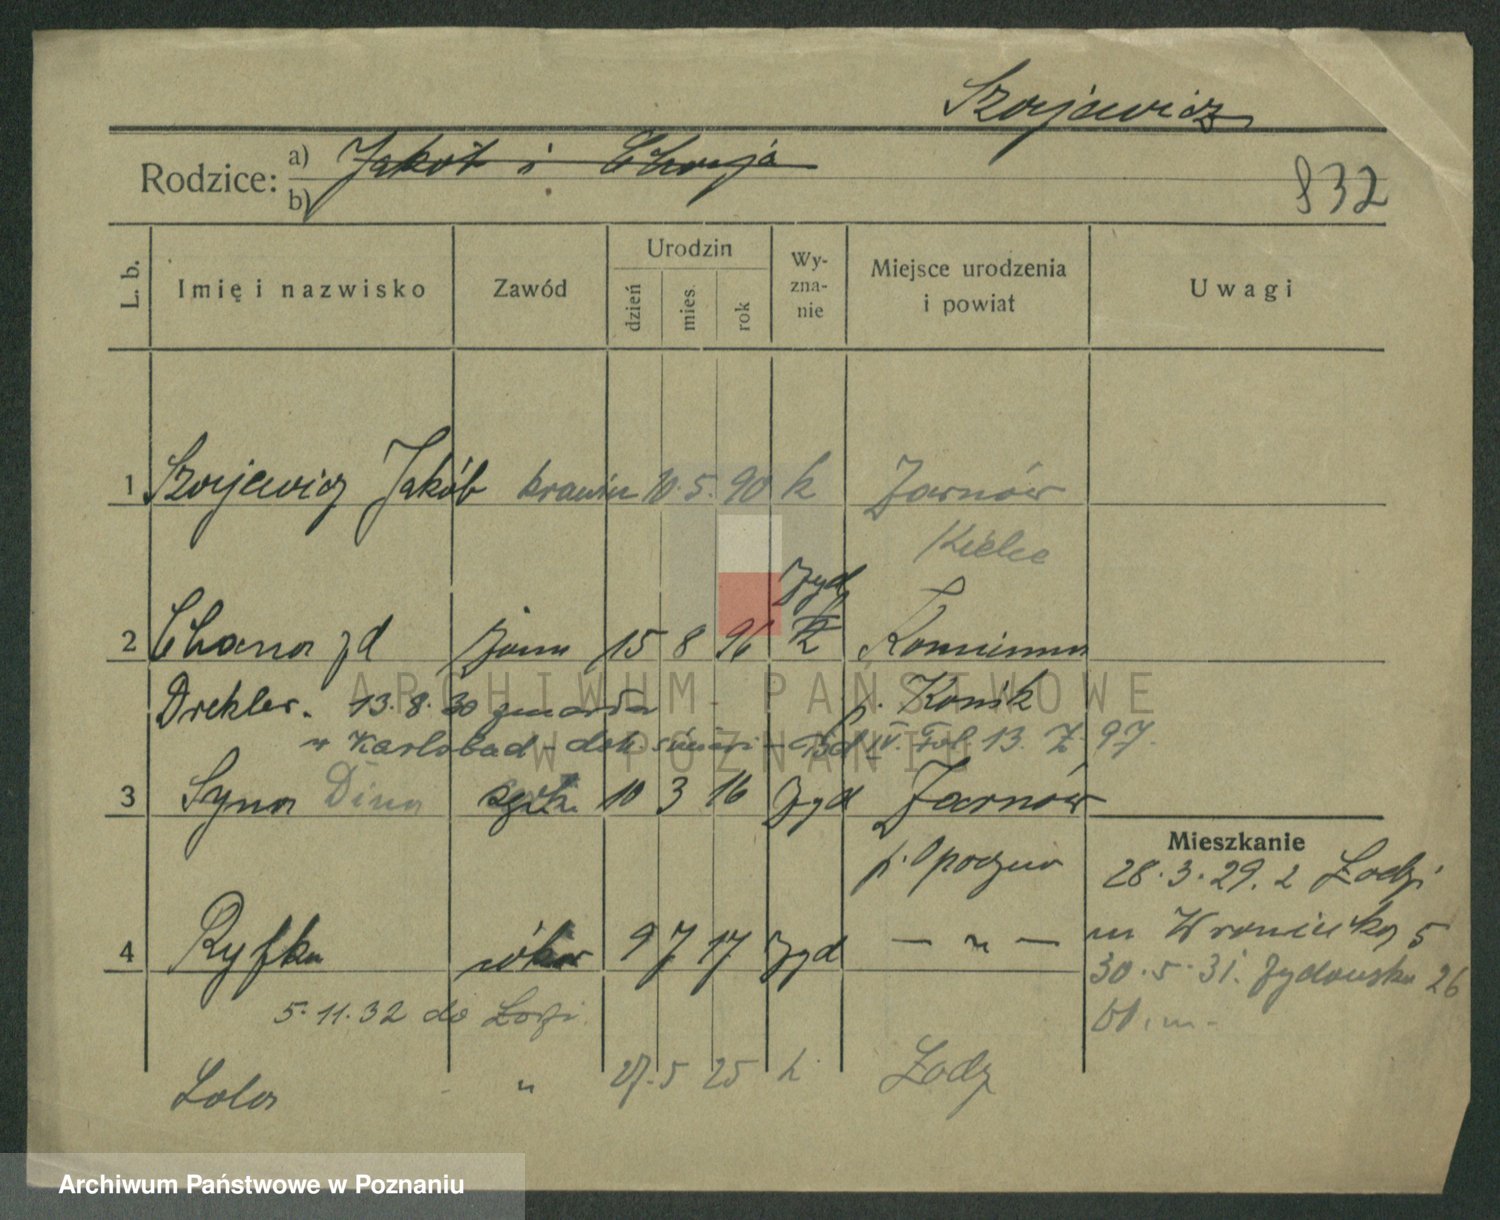 Szajewicz
Rodzice: a) Jakób i Chaja
b)
832
L. b. Imię i nazwisko Zawód Urodzin dzień mies. rok Wy-zna-nie Miejsce urodzenia i powiat Uwagi
1 Szajewicz Jakób krawiec 10. 5. 90 k Żarnów
Kielce
Żyd
2 Chana zd żona 15 8 96 Kamienna
Drekler. 13.8.30 zmarła p. Końsk
w Karlsbad - 13. Z. 97.
3 Syna Dina 10 3 16 żyd Żarnów
p. Opoczno
Mieszkanie
28.3.29. z Łodzi
4 Ryfka córka 9 7 17 żyd — " —
m Wroniecka 5
30.5.31. Żydowska 26
5.11.32 do Łodzi
Lola " 27.5 25 Łodz
ARCHIWUM PAŃSTWOWE
W POZNANIU
Archiwum Państwowe w Poznaniu